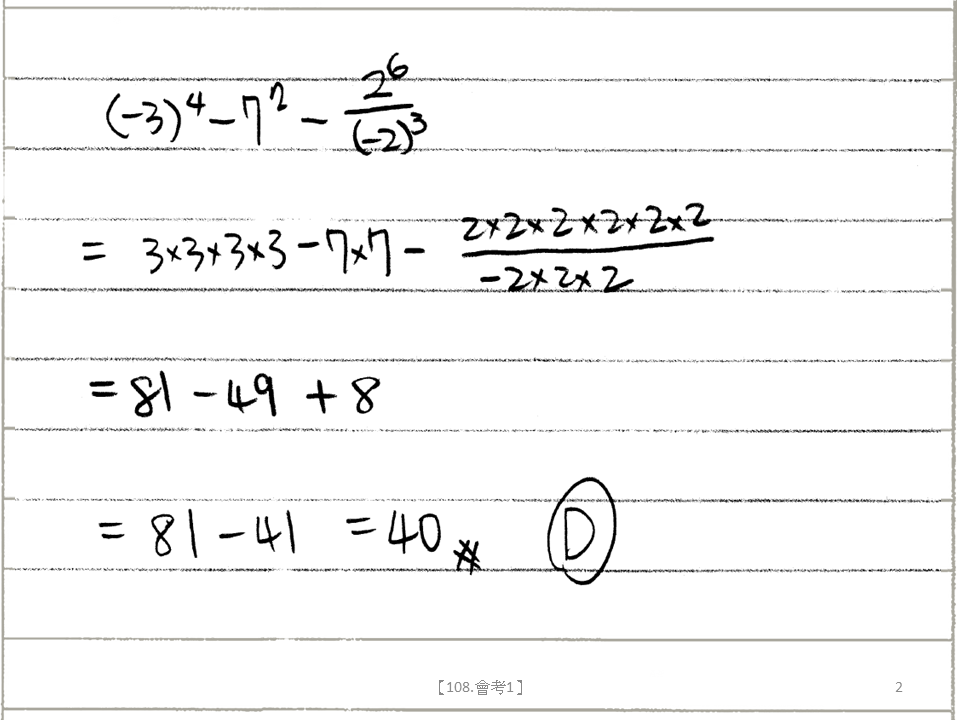 (-3)⁴ - 7² - 2⁶/(-2)³
= 3×3×3×3 - 7×7 - 2×2×2×2×2×2/-2×2×2
= 81 - 49 + 8
= 81 - 41 = 40 # D
【108.會考1】 2